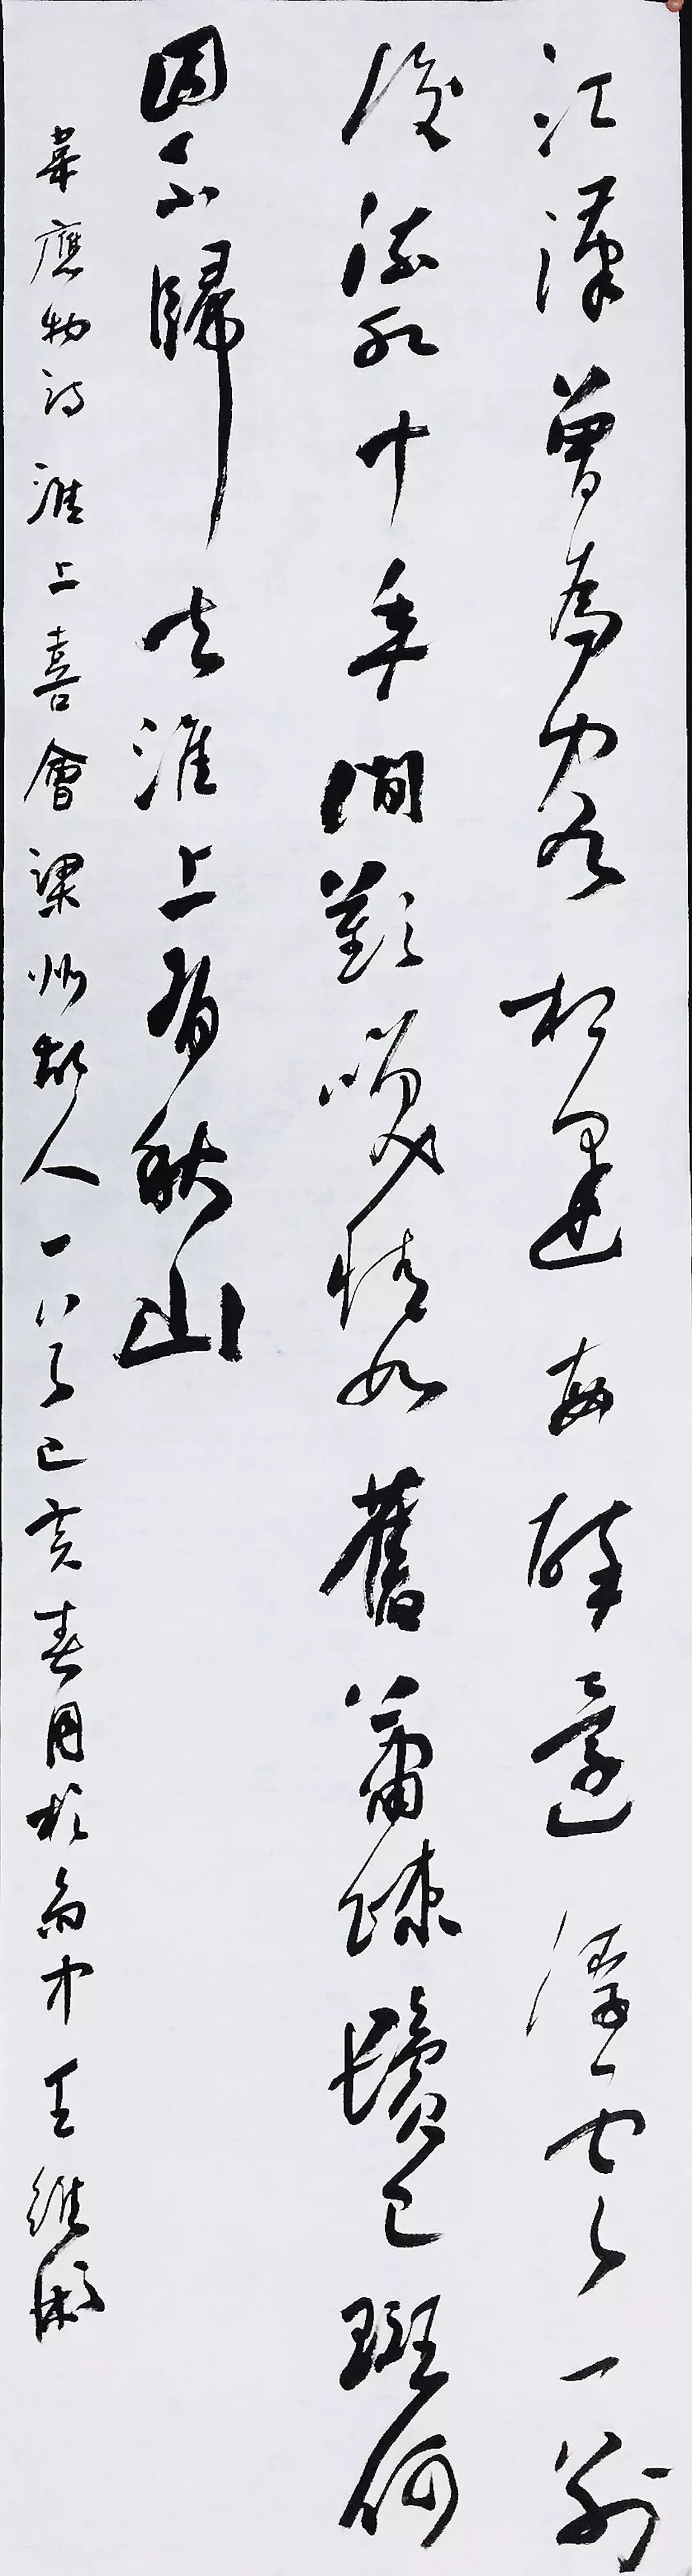 江漢曾為客相逢每醉還浮雲一別
後流水十年間歡笑情如舊蕭疏鬢已斑何
因不歸去淮上有秋山
韋應物詩淮上喜會梁州故人一首己亥春月於中王維